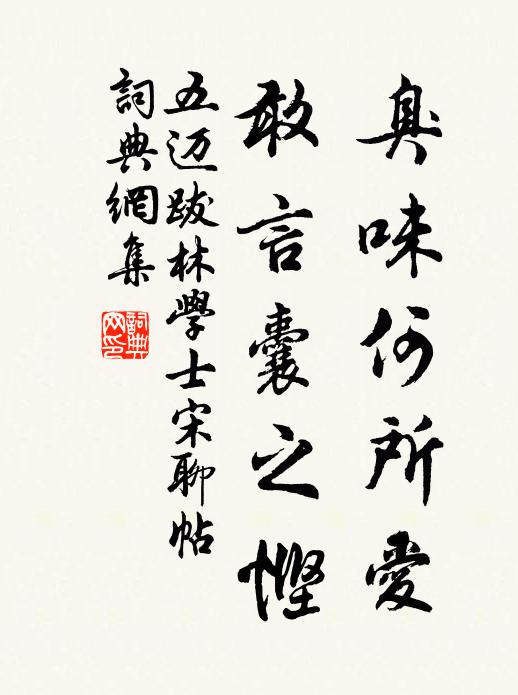 臭味何所愛
敢言囊之慳
五迈跋林學士宋聊帖
詞典網集
詞典
网印